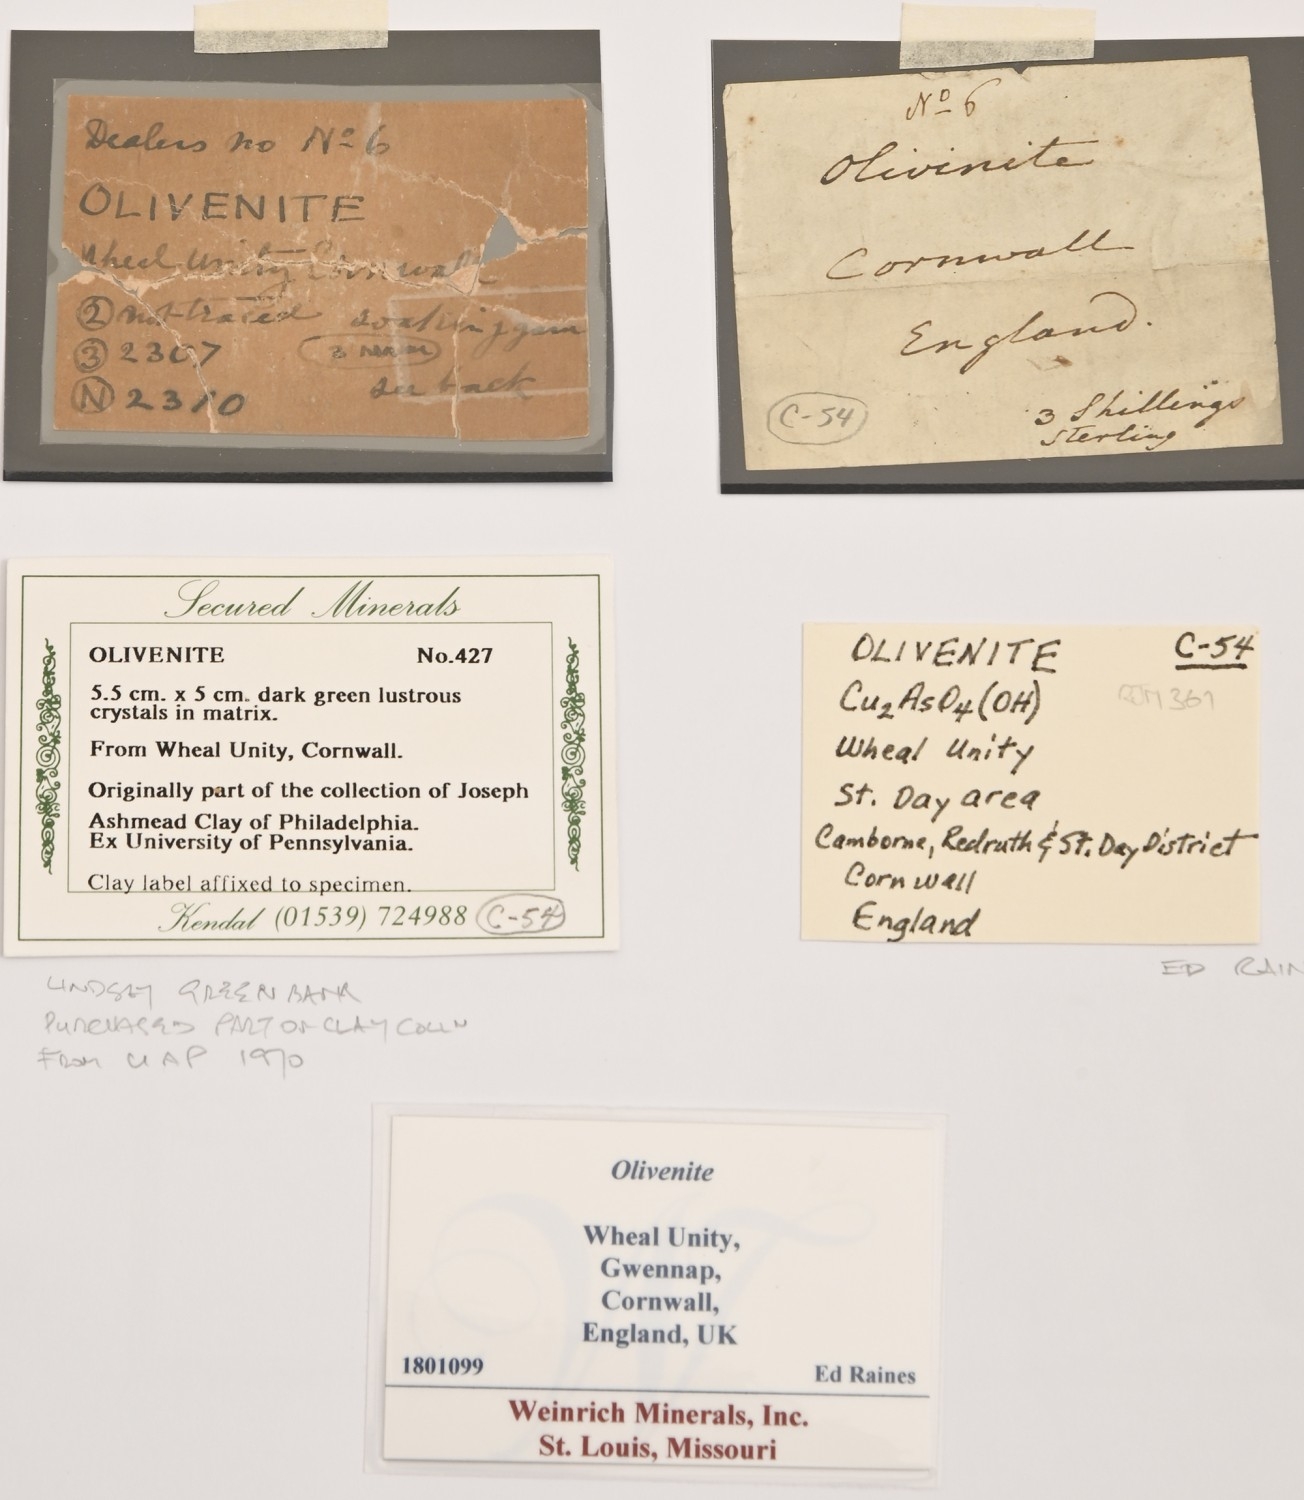 Dealers no Nº 6
OLIVENITE
Wheel Unity Cornwall
② not traced
③ 2307
see back
Ⓝ 2310
Nº 6
Olivinite
Cornwall
England.
C-54
3 Shillings
Sterling
Secured Minerals
OLIVENITE No.427
5.5 cm. x 5 cm. dark green lustrous
crystals in matrix.
From Wheal Unity, Cornwall.
Originally part of the collection of Joseph
Ashmead Clay of Philadelphia.
Ex University of Pennsylvania.
Clay label affixed to specimen.
Kendal (01539) 724988 C-54
OLIVENITE C-54
Cu₂AsO₄(OH)
Wheal Unity
St. Day area
Camborne, Redruth & St. Day District
Cornwall
England
ED RAIN
LINDSEY GREENBANK
PURCHASED PART OF CLAY COLLN
FROM UAP 1970
Olivenite
Wheal Unity,
Gwennap,
Cornwall,
England, UK
1801099 Ed Raines
Weinrich Minerals, Inc.
St. Louis, Missouri